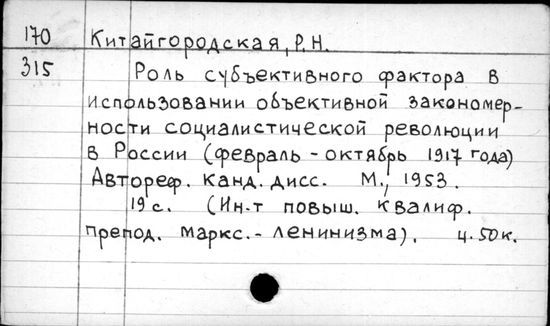 170 Китайгородская, Р.Н.
315 Роль субъективного фактора в
использовании объективной закономер-
ности социалистической революции
в России (февраль - октябрь 1917 года)
Автореф. канд. дисс. М., 1953.
19 с. (Ин-т повыш. квалиф.
препод. маркс.- ленинизма). ц. 50к.